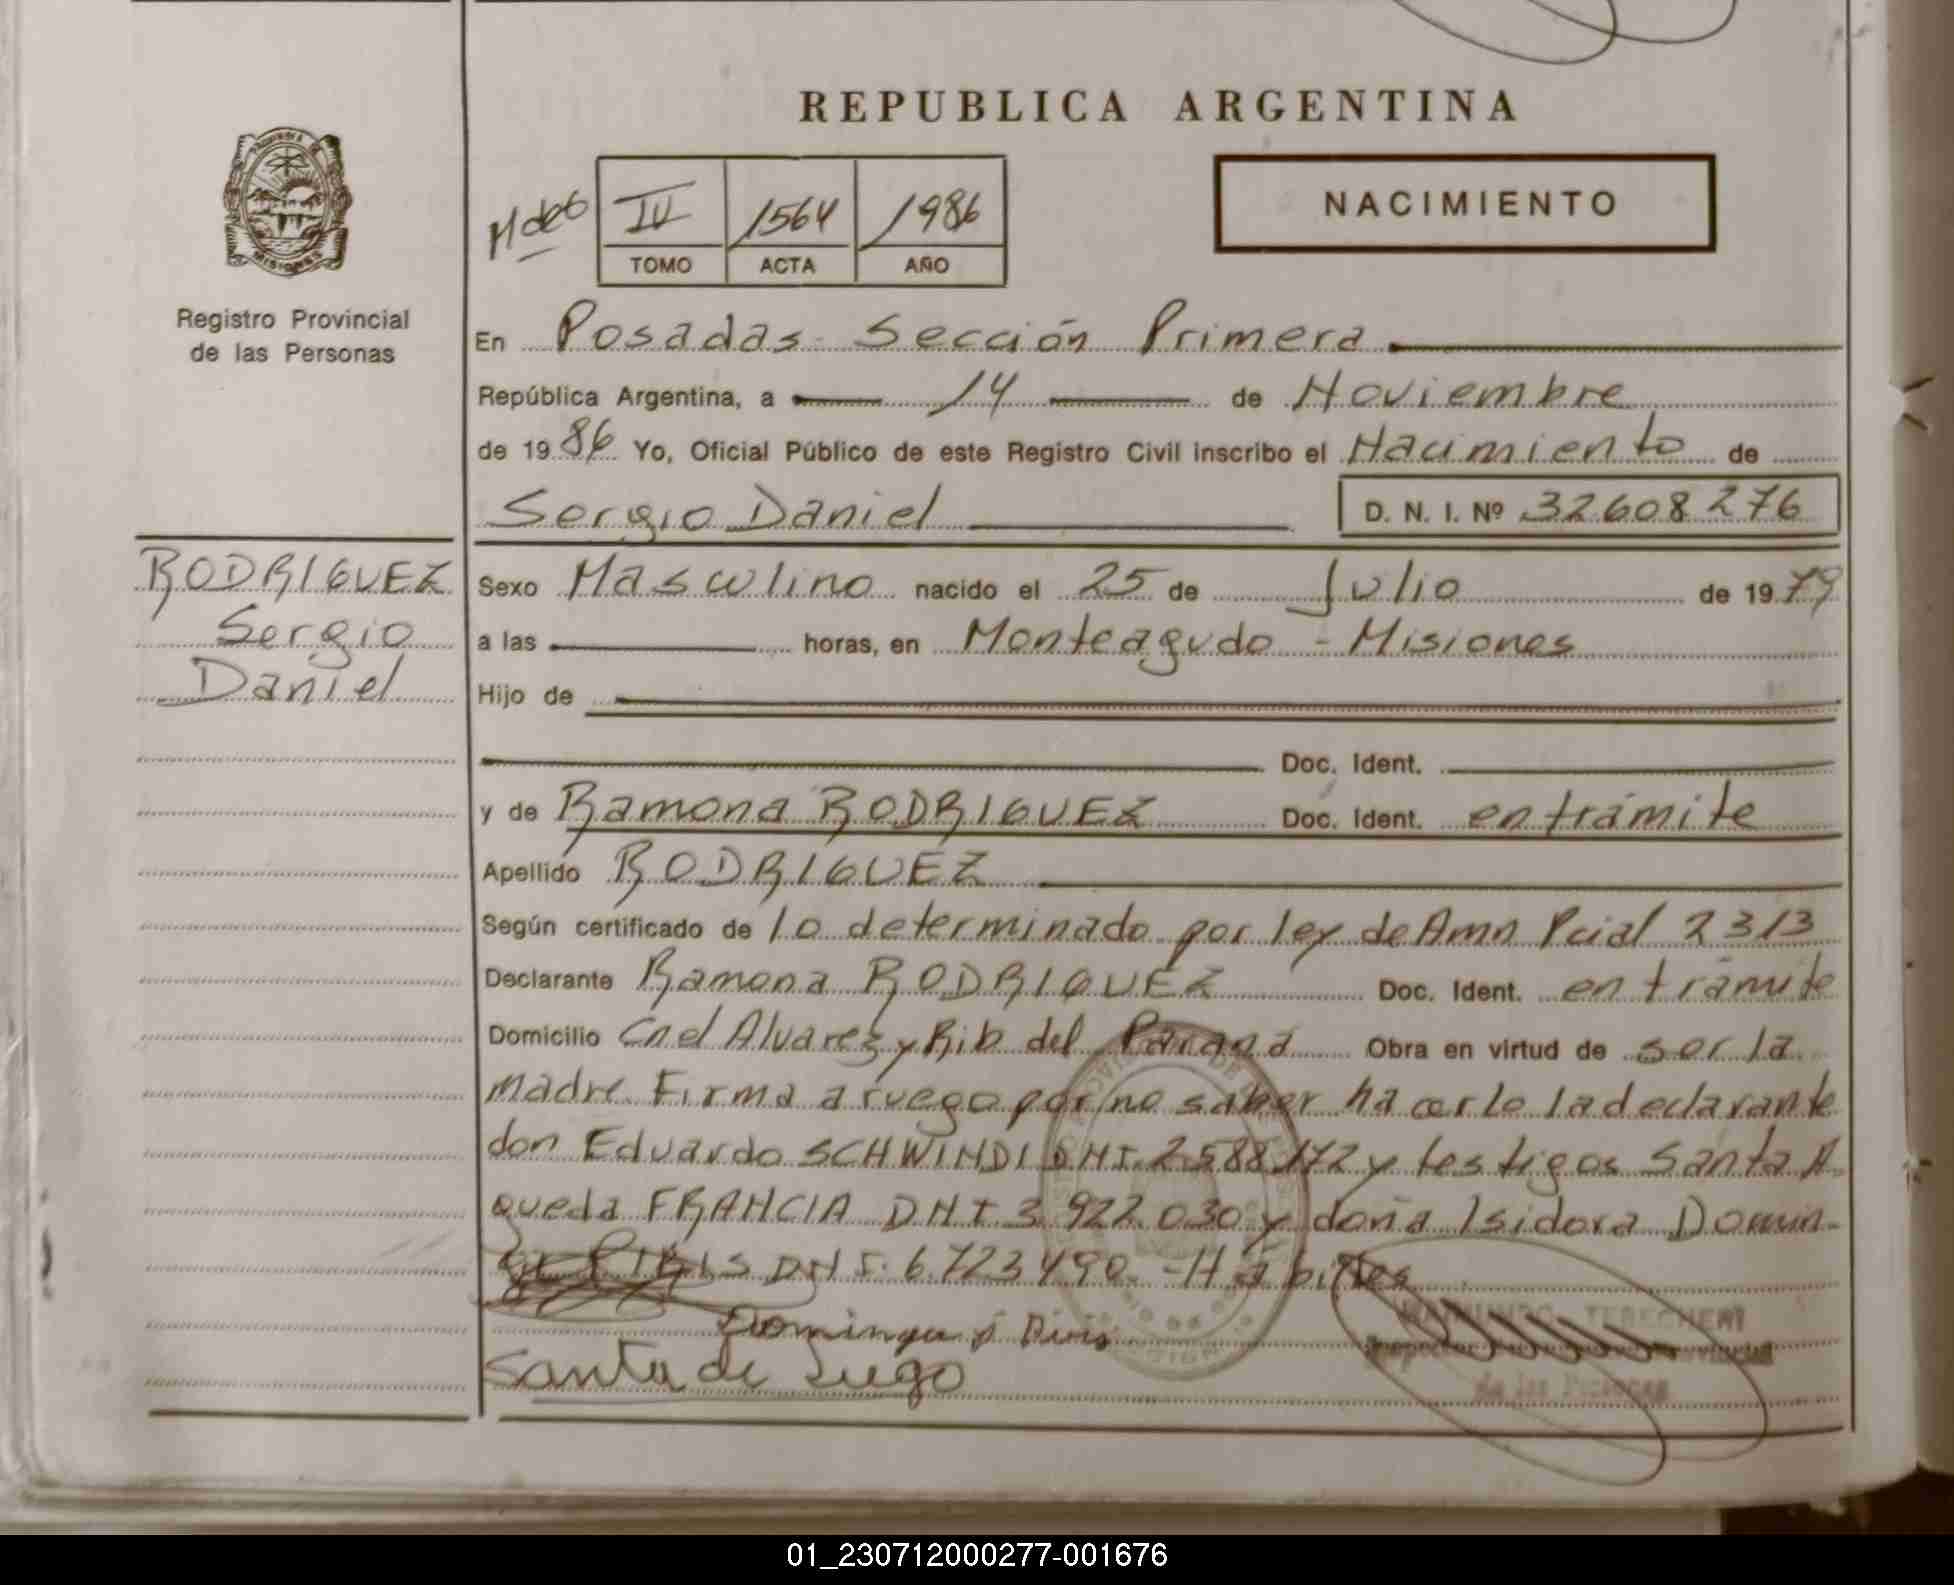 REPUBLICA ARGENTINA
NACIMIENTO
IV 1564 1986
TOMO ACTA AÑO
PROVINCIA DE
MISIONES
Registro Provincial
de las Personas
En Posadas Sección Primera
República Argentina, a 14 de Noviembre
de 1986 Yo, Oficial Público de este Registro Civil inscribo el Nacimiento de
Sergio Daniel D. N. I. Nº 32608276
RODRIGUEZ
Sergio
Daniel
Sexo Masculino nacido el 25 de Julio de 1979
a las horas, en Monteagudo - Misiones
Hijo de
Doc. Ident.
y de Ramona RODRIGUEZ Doc. Ident. en trámite
Apellido RODRIGUEZ
Según certificado de lo determinado por ley de Amn Pcial 2313
Declarante Ramona RODRIGUEZ Doc. Ident. en trámite
Domicilio Cnel Alvarez y Rib del Paraná Obra en virtud de ser la
madre. Firma a ruego por no saber hacerlo la declarante
don Eduardo SCHWINDI DNI. 2588172 y testigos Santa
queda FRANCIA DNI 3.922.030 y doña Isidora Domin-
DNI. 6.723490. - Hábiles
Santa de Luego
de las Personas
01_230712000277-001676